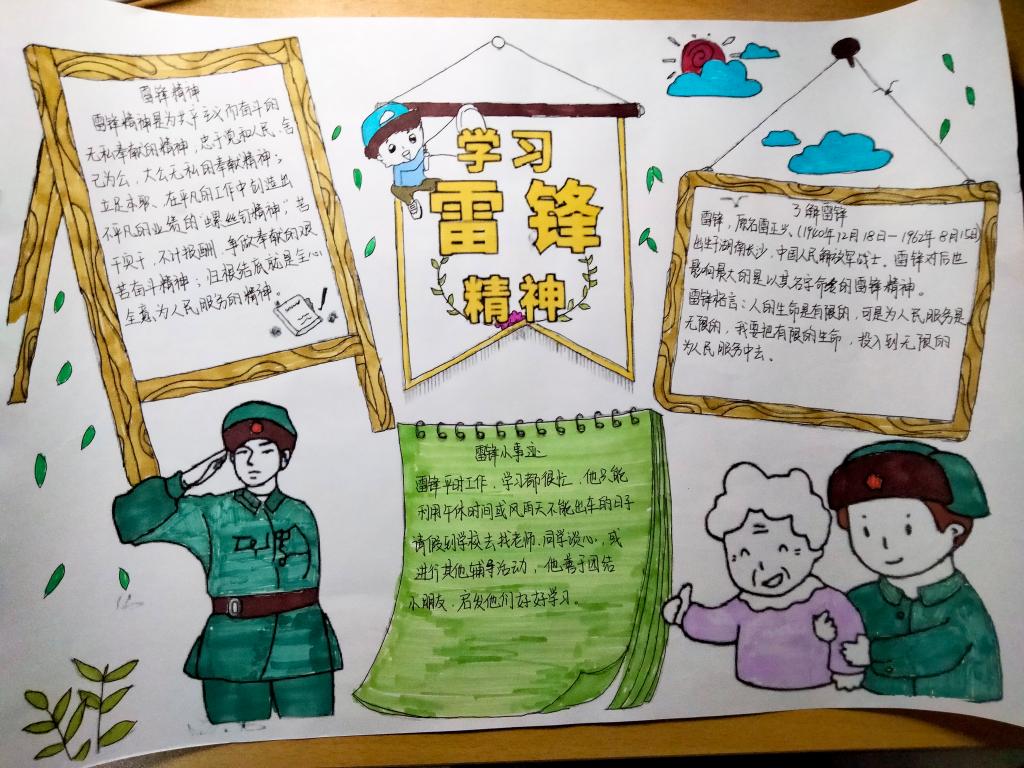 雷锋精神
雷锋精神是为共产主义而奋斗的
无私奉献的精神，忠于党和人民、舍
己为公，大公无私的奉献精神；
立足本职、在平凡的工作中创造出
不平凡的业绩的“螺丝钉精神”；苦
干实干，不计报酬，争做奉献的艰
苦奋斗精神；归根结底就是全心
全意为人民服务的精神。
学习
雷锋
精神
了解雷锋
雷锋，原名雷正兴，（1940年12月18日—1962年8月15日）
出生于湖南长沙，中国人民解放军战士，雷锋对后世
影响最大的是以其名字命名的雷锋精神。
雷锋格言：人的生命是有限的，可是为人民服务是
无限的，我要把有限的生命，投入到无限的
为人民服务中去。
雷锋小事迹
雷锋平时工作、学习都很忙，他只能
利用午休时间或风雨天不能出车的日子
请假到学校去找老师、同学谈心，或
进行其他辅导活动，他善于团结
小朋友，启发他们好好学习。